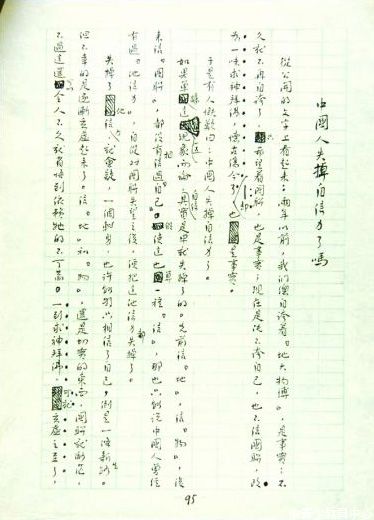 中國人失掉自信力了嗎
從公開的文字上看起來：兩年以前，我們總自誇着「地大物博」，是事實；不
久就不再自誇了，只希望着國聯，也是事實；現在是既不誇自己，也不信國聯，改
為一味求神拜佛，懷古傷今了——却也是事實。
於是有人慨嘆曰：中國人失掉自信力了。
如果單據這一點現象而論，自信其實是早就失掉了的。先前信「地」，信「物」，後
來信「國聯」，都沒有相信過「自己」。假使這也算一種「信」，那也只能說中國人曾經
有過「他信力」，自從對國聯失望之後，便把這他信力都失掉了。
失掉了他信力，就會疑，一個轉身，也許能夠只相信了自己，倒是一條新生路，
但不幸的是逐漸玄虛起來了。信「地」和「物」，還是切實的東西，國聯就渺茫，
不過這還可以令人不久就省悟到依賴她的不可靠。一到求神拜佛，可就玄虛之至了，
95